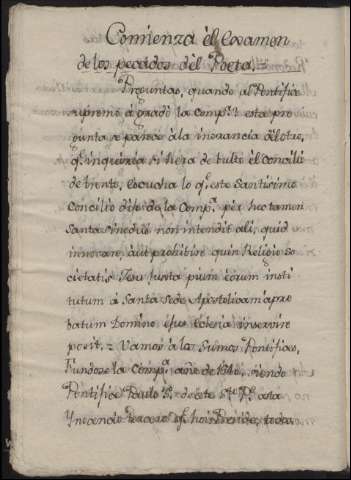 Comienza el examen
de los pecados del Poeta. =
Preguntas, quando al Pontifice
supremo agradó la Comp.ª esta pre
gunta se parece à la ignorancia del otro,
q.
de trento, escucha lo q. este Santisimo
Concilio dijo de la Comp.ª per hec tamen
Santa Sinodus non intendit aliquid
innovare, aut prohibere quin Religio So
cietatis Jesu juxta pium eorum insti
tutum à Santa Sede Apostolica apro
batum Domino ejus Eclesia inservire
posit. = Vamos à los Sumos Pontifices,
Fundose la Comp.ª año de 1540, siendo
Pontifice Paulo 3º, desde este P.e asta
Ynocencio q. hoi Preside, todos